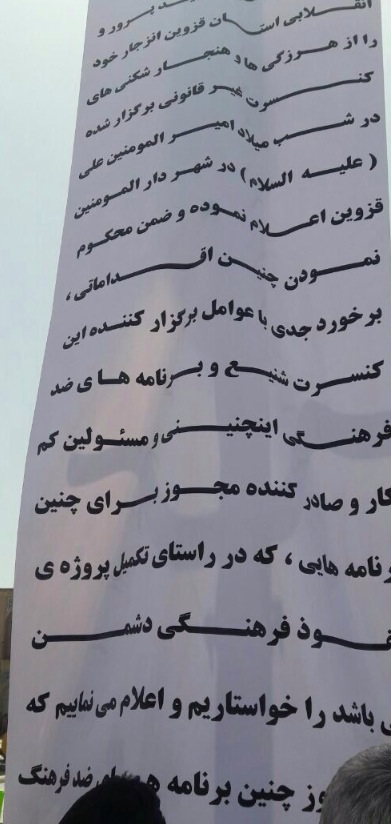 انقلابی استان قزوین انزجار خود
را از هرزگی ها و هنجار شکنی های
کنسرت غیر قانونی برگزار شده
در شب میلاد امیر المومنین علی
( علیه السلام) در شهر دار المومنین
قزوین اعلام نموده و ضمن محکوم
نمودن چنین اقداماتی ،
برخورد جدی با عوامل برگزار کننده این
کنسرت شنیع و برنامه ها ی ضد
فرهنگی اینچنینی و مسئولین کم
کار و صادر کننده مجوز برای چنین
نامه هایی ، که در راستای تکمیل پروژه ی
فوذ فرهنگی دشمن
ی باشد را خواستاریم و اعلام می نماییم که
وز چنین برنامه ضد فرهنگ